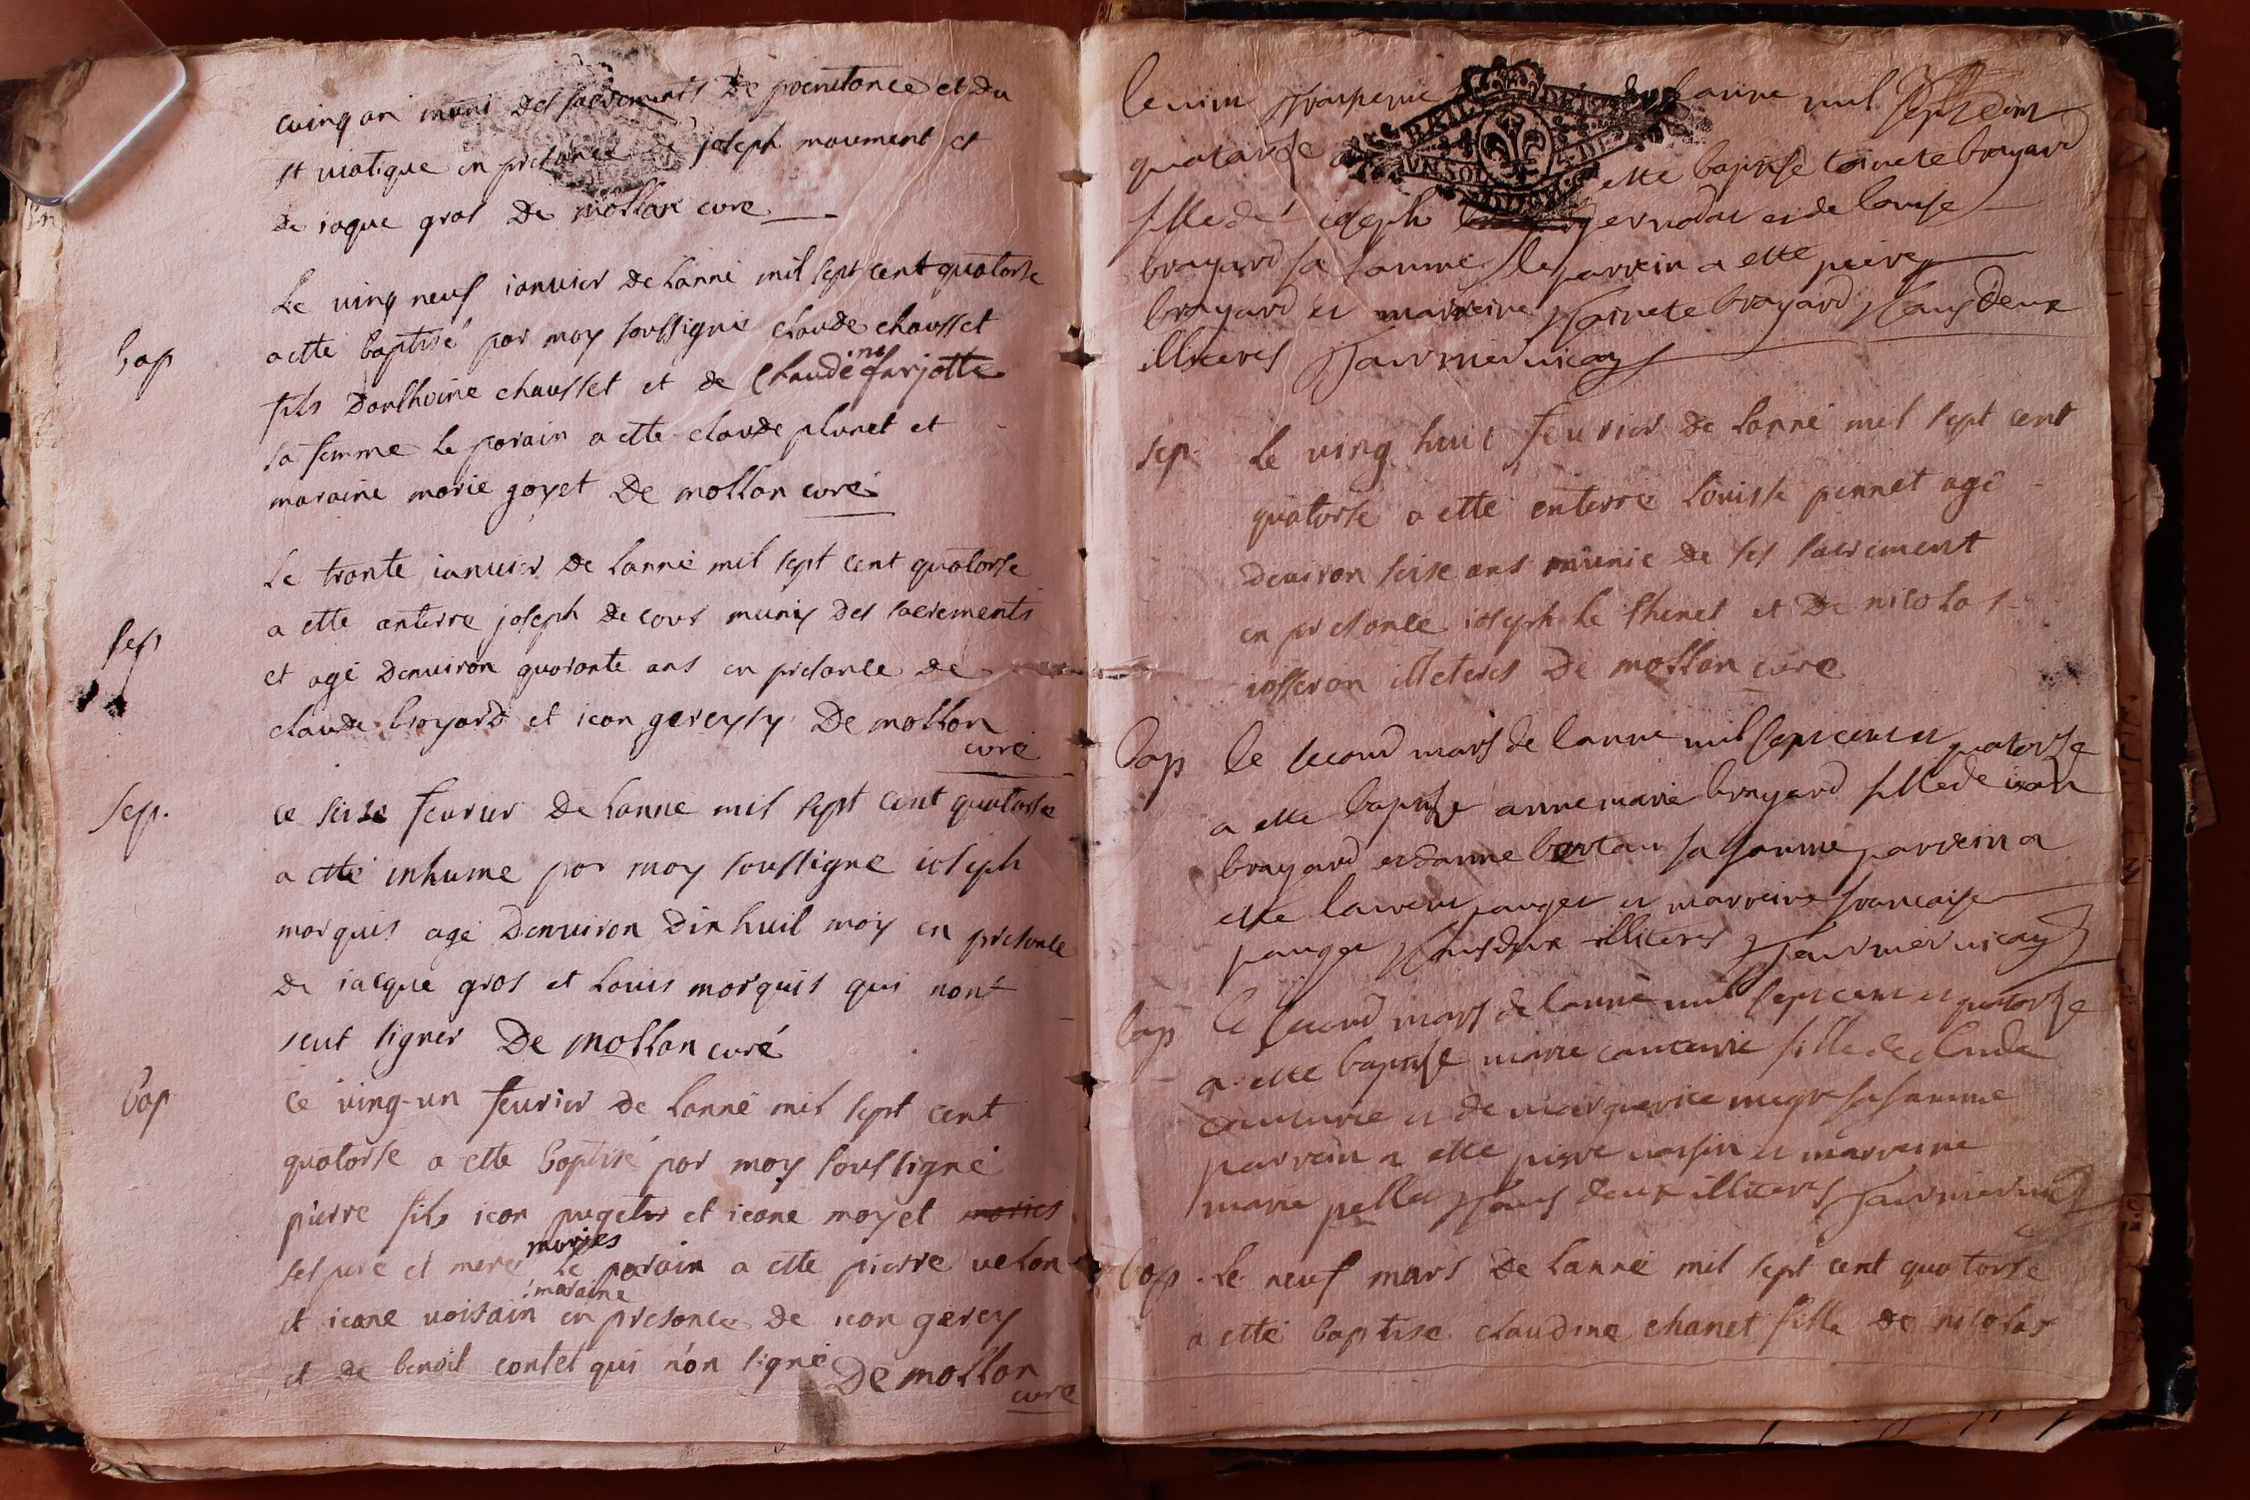 cuinq an muni des sacrements De poenitance et du
st viatique en presance de joseph mouement et
de iaque gros De mollan curé
Bap
Le ving neuf ianvier de Lanné mil sept cent quatorse
a etté baptisé par moy soussigné claude chausset
fils Danthoine chausset et de Claudine farjotte
sa femme le parain a etté claude plunet et
maraine marie goyet De mollan curé
Sep
Le trante ianvier de Lanné mil sept cent quatorse
a etté anterre joseph de cours muniy des sacrements
et agé Denuiron quarante ans en presance de
claude broyard et iean gerey De mollan
curé
Sep.
ce seise feurier de Lanné mil sept cent quatorse
a etté inhume par moy soussigne ioseph
marquis agé Denuiron Dix huil moy en presance
de iacque gros et Louis marquis qui nont
seut signer De mollan curé
bap
ce ving-un feurier de Lanné mil sept cent
quatorse a etté baptisé par moy soussigné
pierre fils iean pugeter et ieane moyet maries
ses pere et mere maries Le parain a etté pierre velon
et maraine ieane voisain en presance de iean gerey
et de benoit contet qui n'on signé De mollan
curé
de Lanné mil sept cent
quatorse a
BAIL
UN SOL
etté baptise toinete brayard
fille de ioseph et de louise
brayard sa famme le parrein a etté pierre
brayard et marreine toinete brayard tous deux
illiteres fournier vicay
sep.
Le ving huit feurier de Lanné mil sept cent
quatorse a etté enterré Louise pennet agé
denuiron seise ans munie de ses sacrement
en presance ioseph Le thenet et De nicolas
iosseran illeteres De mollan curé
Bap
le second mars de lanné mil sept cent et quatorse
a etté baptise anne marie brayard fille de iean
brayard et danne bertau sa famme parrein a
etté laurent pauget et marreine francoise
pauget tous deux illiteres fournier vicay
bap
le second mars de lanné mil sept cent et quatorse
a etté baptise marie couturie fille de claude
couturie et de marguerite sa famme
parrein a etté pierre voysin et marreine
marie pellet tous deux illiteres fournier vic
bap
Le neuf mars de Lanné mil sept cent quatorse
a etté baptise claudine chanet fille de nicolas